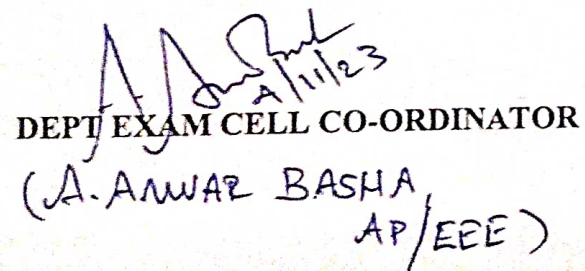 A/11/23
DEPT EXAM CELL CO-ORDINATOR
(A. ANWAR BASHA,
AP/EEE)